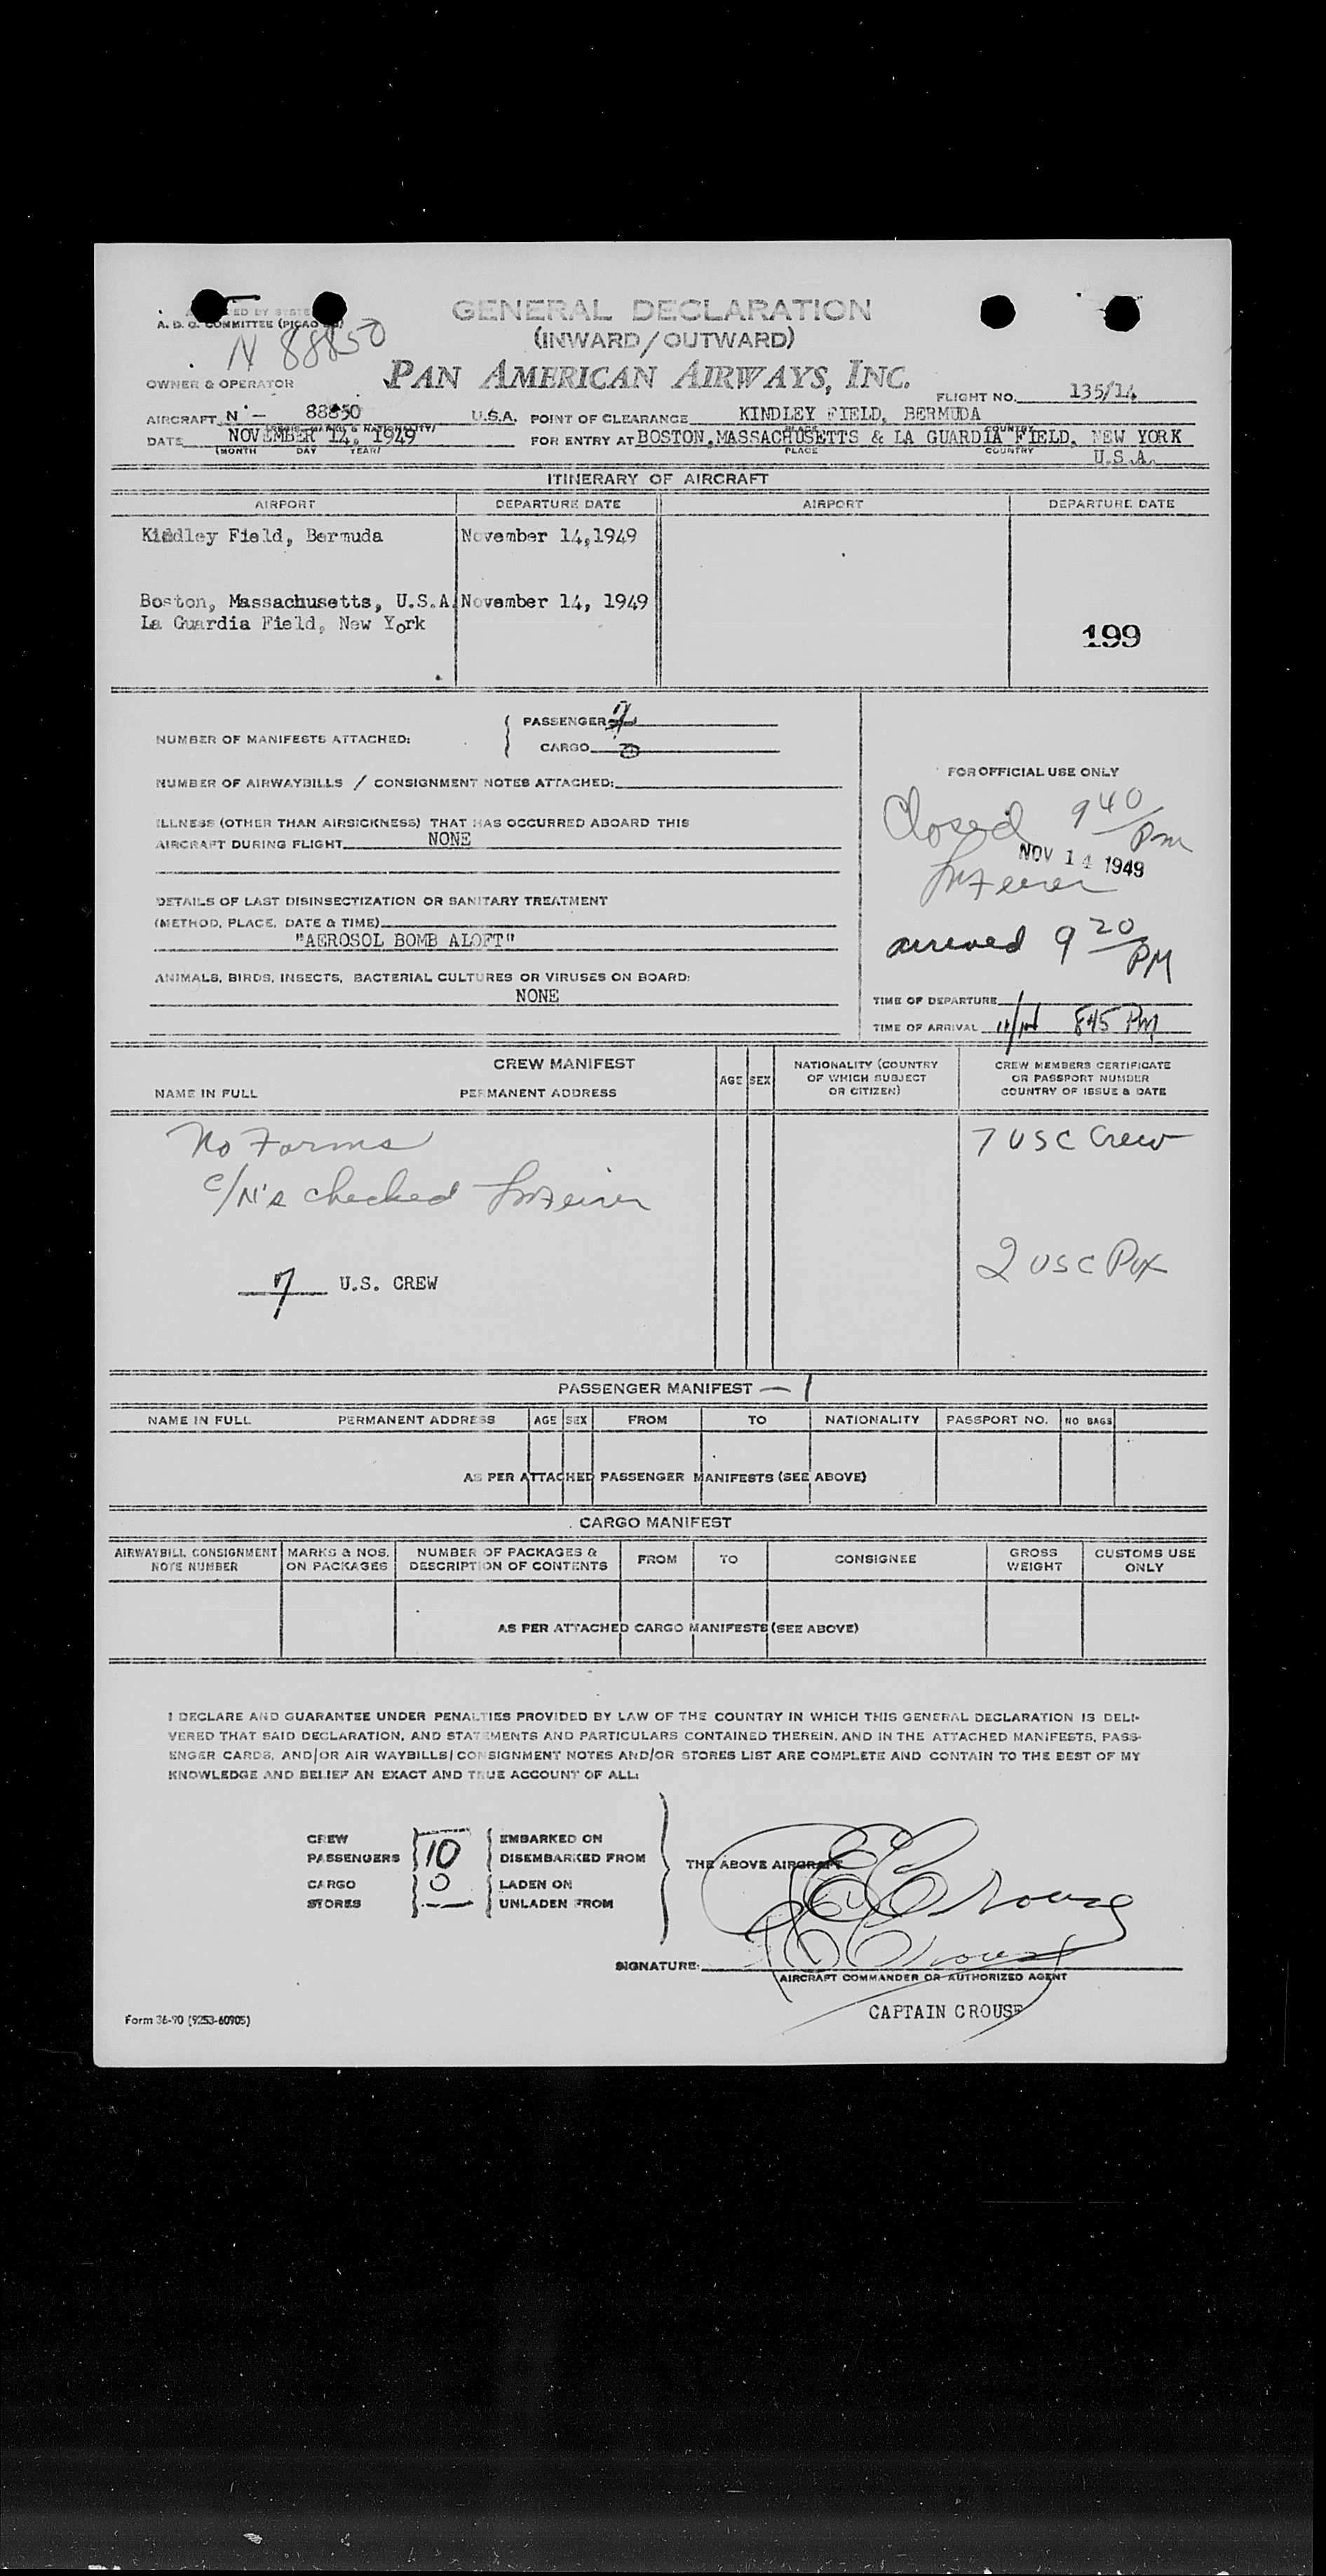 GENERAL DECLARATION
(INWARD/OUTWARD)
A. D. C. COMMITTEE (PICAO
N 88850
OWNER & OPERATOR
PAN AMERICAN AIRWAYS, INC.
FLIGHT NO. 135/14
AIRCRAFT N - 88850 U.S.A. POINT OF CLEARANCE KINDLEY FIELD, BERMUDA
DATE NOVEMBER 14, 1949 FOR ENTRY AT BOSTON, MASSACHUSETTS & LA GUARDIA FIELD, NEW YORK
(MONTH DAY YEAR) PLACE COUNTRY U.S.A.
ITINERARY OF AIRCRAFT
AIRPORT DEPARTURE DATE AIRPORT DEPARTURE DATE
Kindley Field, Bermuda November 14,1949
Boston, Massachusetts, U.S.A. November 14, 1949
La Guardia Field, New York
199
NUMBER OF MANIFESTS ATTACHED:
PASSENGER
CARGO
NUMBER OF AIRWAYBILLS / CONSIGNMENT NOTES ATTACHED:
ILLNESS (OTHER THAN AIRSICKNESS) THAT HAS OCCURRED ABOARD THIS
AIRCRAFT DURING FLIGHT NONE
DETAILS OF LAST DISINSECTIZATION OR SANITARY TREATMENT
(METHOD, PLACE, DATE & TIME)
"AEROSOL BOMB ALOFT"
ANIMALS, BIRDS, INSECTS, BACTERIAL CULTURES OR VIRUSES ON BOARD:
NONE
FOR OFFICIAL USE ONLY
Closed 9 40/pm
NOV 14 1949
arrived 9 20/PM
TIME OF DEPARTURE
TIME OF ARRIVAL 11/14 845 PM
CREW MANIFEST
NAME IN FULL PERMANENT ADDRESS
AGE SEX
NATIONALITY (COUNTRY
OF WHICH SUBJECT
OR CITIZEN)
CREW MEMBERS CERTIFICATE
OR PASSPORT NUMBER
COUNTRY OF ISSUE & DATE
No Forms
7 USC Crew
c/N's checked
2 USC Pax
7 U.S. CREW
PASSENGER MANIFEST — 1
NAME IN FULL PERMANENT ADDRESS AGE SEX FROM TO NATIONALITY PASSPORT NO. NO BAGS
AS PER ATTACHED PASSENGER MANIFESTS (SEE ABOVE)
CARGO MANIFEST
AIRWAYBILL CONSIGNMENT
NOTE NUMBER
MARKS & NOS.
ON PACKAGES
NUMBER OF PACKAGES &
DESCRIPTION OF CONTENTS
FROM TO CONSIGNEE
GROSS
WEIGHT
CUSTOMS USE
ONLY
AS PER ATTACHED CARGO MANIFESTS (SEE ABOVE)
I DECLARE AND GUARANTEE UNDER PENALTIES PROVIDED BY LAW OF THE COUNTRY IN WHICH THIS GENERAL DECLARATION IS DELI-
VERED THAT SAID DECLARATION, AND STATEMENTS AND PARTICULARS CONTAINED THEREIN, AND IN THE ATTACHED MANIFESTS, PASS-
ENGER CARDS, AND/OR AIR WAYBILLS/CONSIGNMENT NOTES AND/OR STORES LIST ARE COMPLETE AND CONTAIN TO THE BEST OF MY
KNOWLEDGE AND BELIEF AN EXACT AND TRUE ACCOUNT OF ALL:
CREW EMBARKED ON
PASSENGERS 10 DISEMBARKED FROM
CARGO 0 LADEN ON
STORES — UNLADEN FROM
THE ABOVE AIRCRAFT
E C Crouse
SIGNATURE:
AIRCRAFT COMMANDER OR AUTHORIZED AGENT
CAPTAIN CROUSE
Form 36-90 (9253-60905)